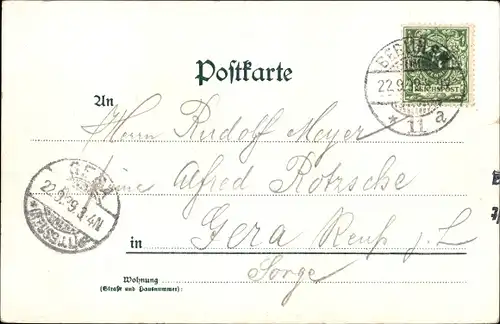 Postkarte
BERLIN S.
22.9.99
* 11 a
REICHSPOST
An
Herrn Rudolf Meyer
Alfred Rötzsche
GERA
22.9.99. 3-4N.
* (REUSS) 1 *
in Gera Reuß j. L
Sorge
Wohnung
(Straße und Hausnummer):